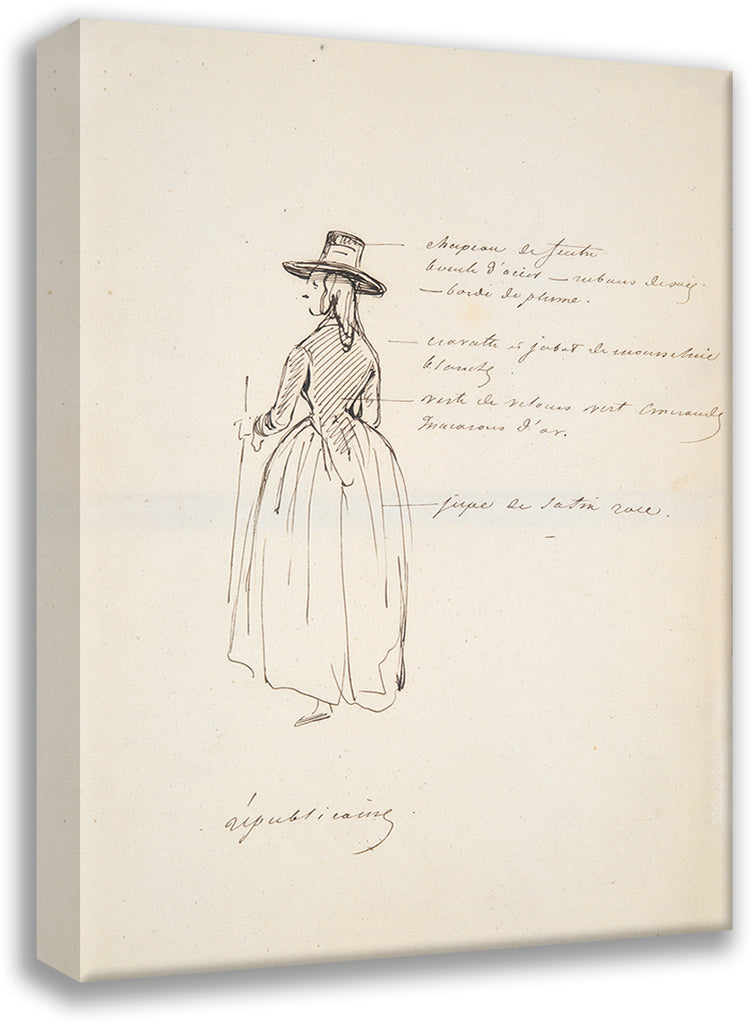 chapeau de feutre
boucle d'acier – rubans de soie
– bordé de plume.
cravatte et jabot de mousseline
blanche
veste de velours vert émeraude
macarons d'or.
jupe de satin rose.
républicaine